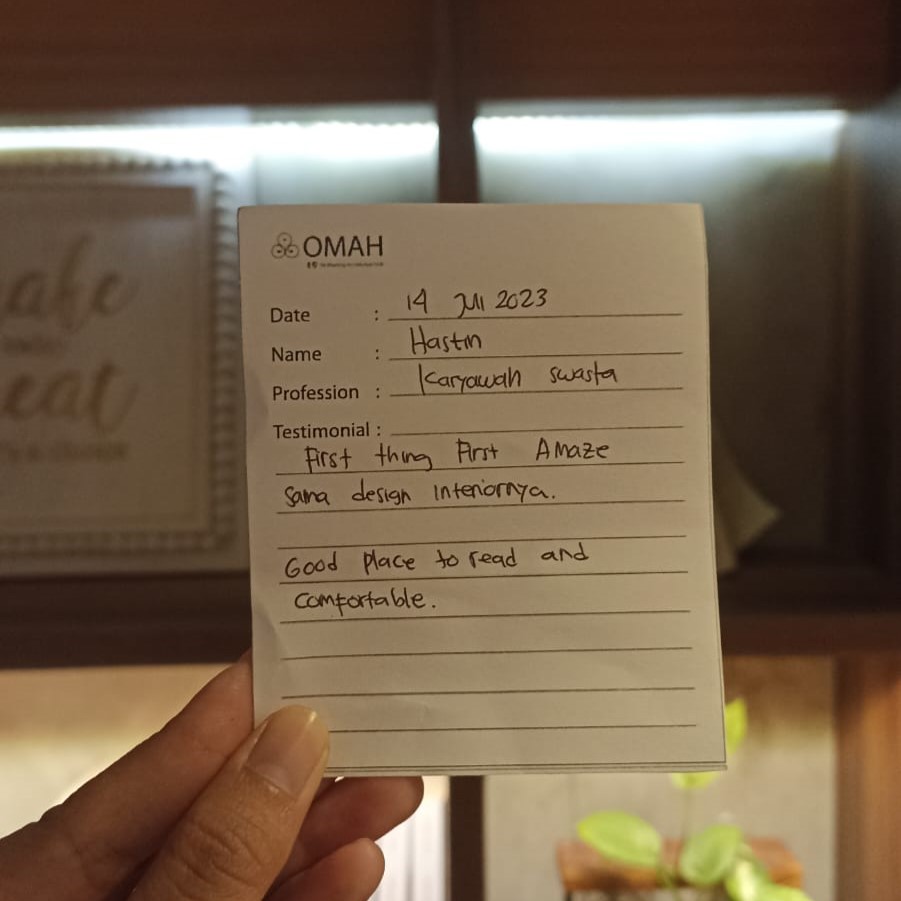 OMAH
Date : 14 Juli 2023
Name : Hastin
Profession : Karyawan swasta
Testimonial :
First thing First Amaze
sama design interiornya.
Good place to read and
comfortable.
eat